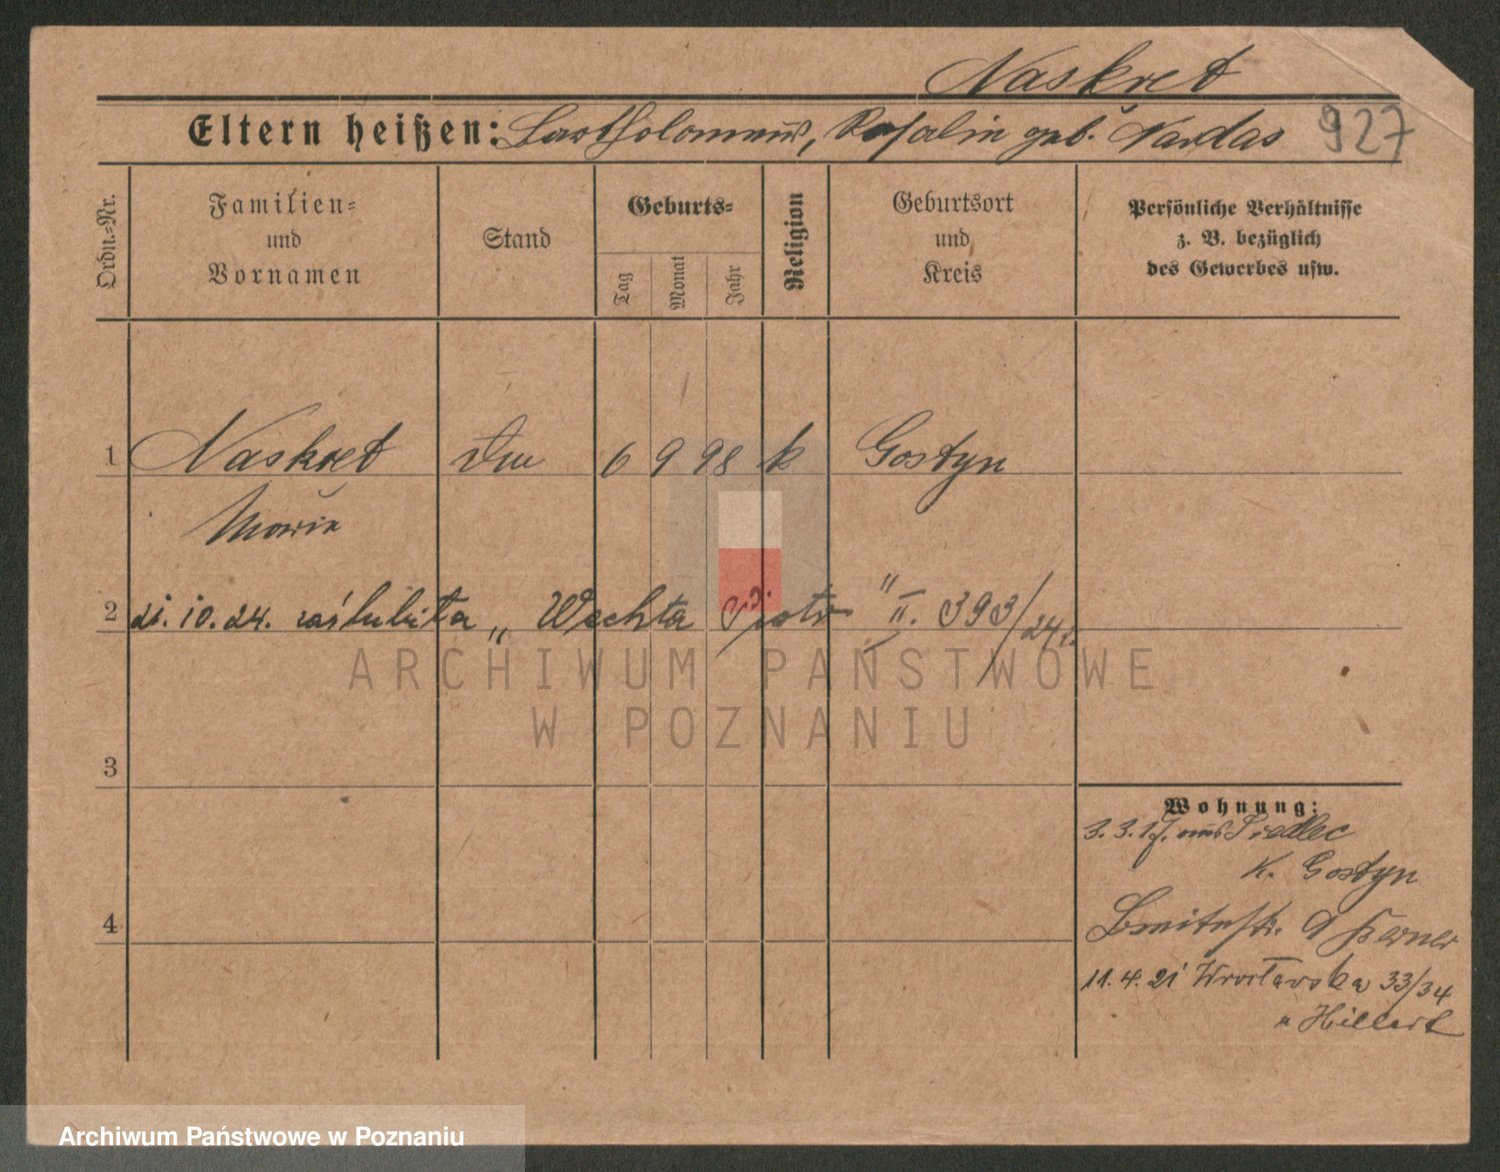 Naskret
Eltern heißen: Bartholomeus, Rosalie geb. Nardas 927
Ordn.-Nr.
Familien-
und
Vornamen
Stand
Geburts-
Tag
Monat
Jahr
Religion
Geburtsort
und
Kreis
Persönliche Verhältnisse
z. B. bezüglich
des Gewerbes usw.
1 Naskret 6 9 98 k Gostyn
Marie
2 21. 10. 24. zaślubiła „Wechta Piotr" II. 393/24
3
4
Wohnung:
3. 3. 17. aus Siedlec
K. Gostyn
Breitestr. 9
11. 4. 21 Wrocławska 33/34
u Hillert
ARCHIWUM PAŃSTWOWE
W POZNANIU
Archiwum Państwowe w Poznaniu